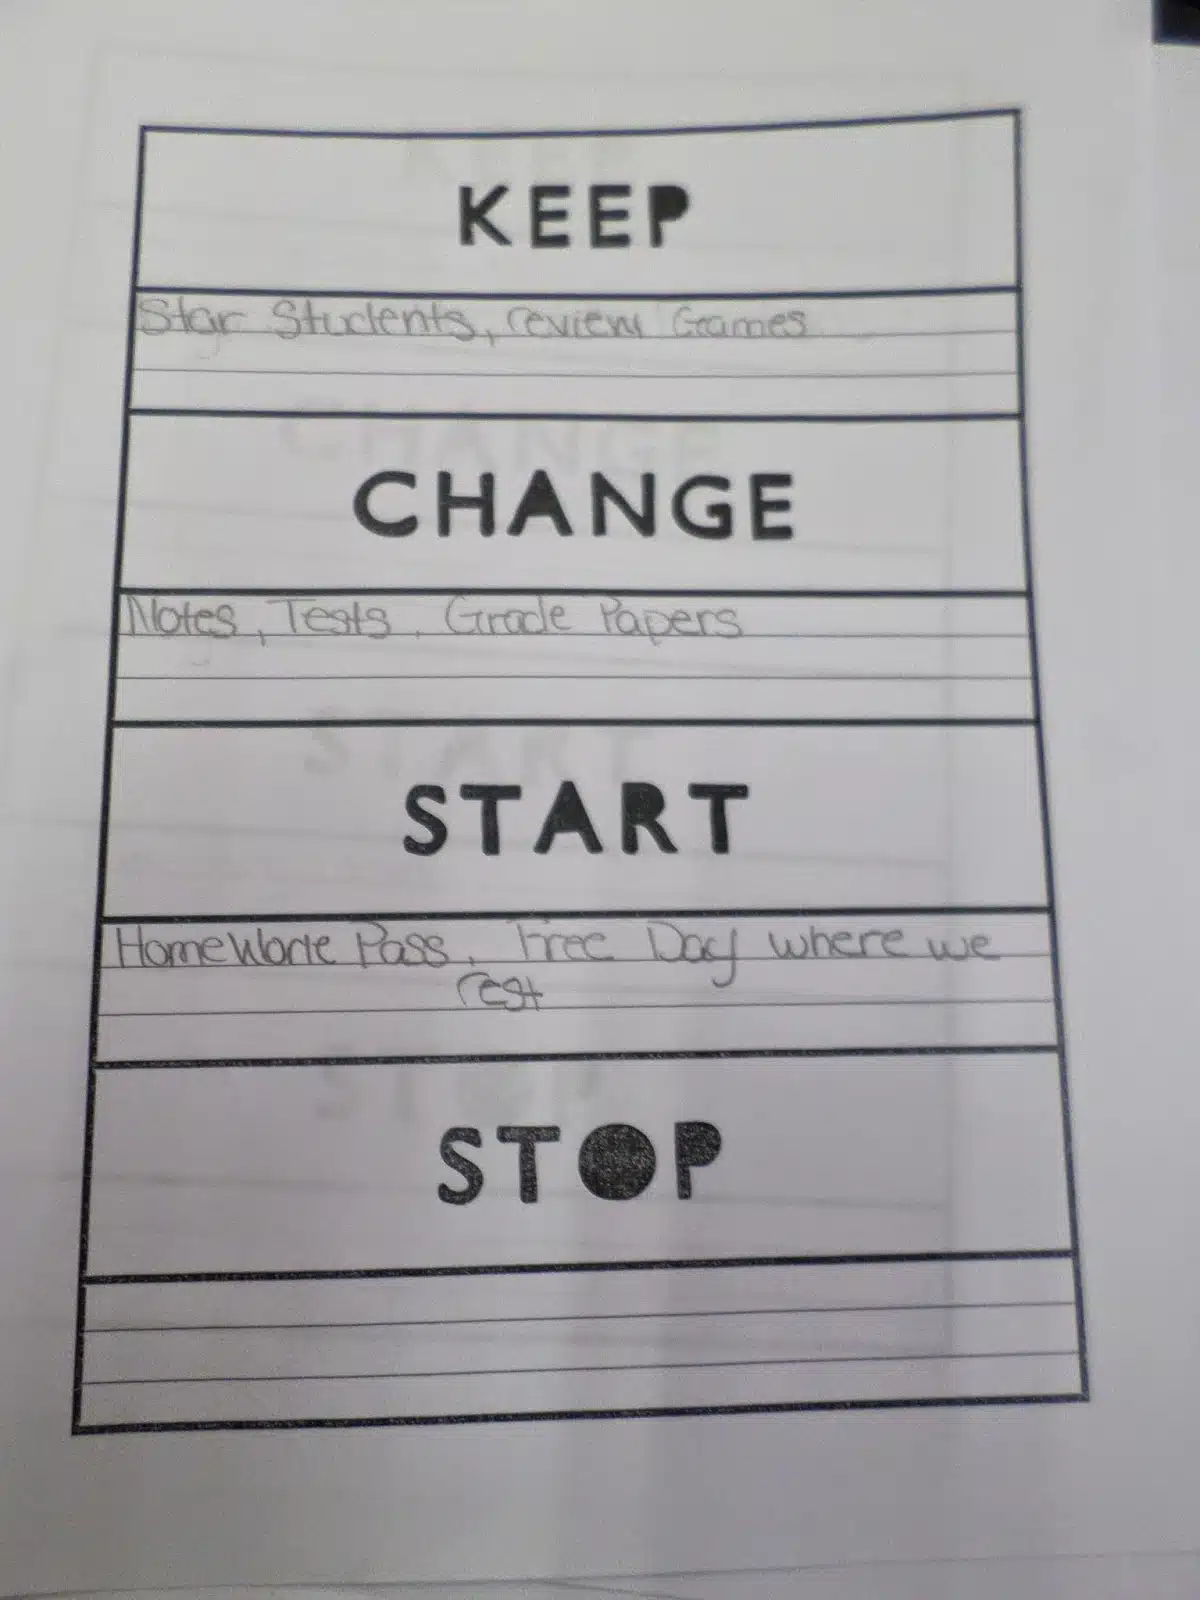 KEEP
Star Students, review Games
CHANGE
Notes, Tests, Grade Papers
START
HomeWork Pass, Free Day where we
rest
STOP